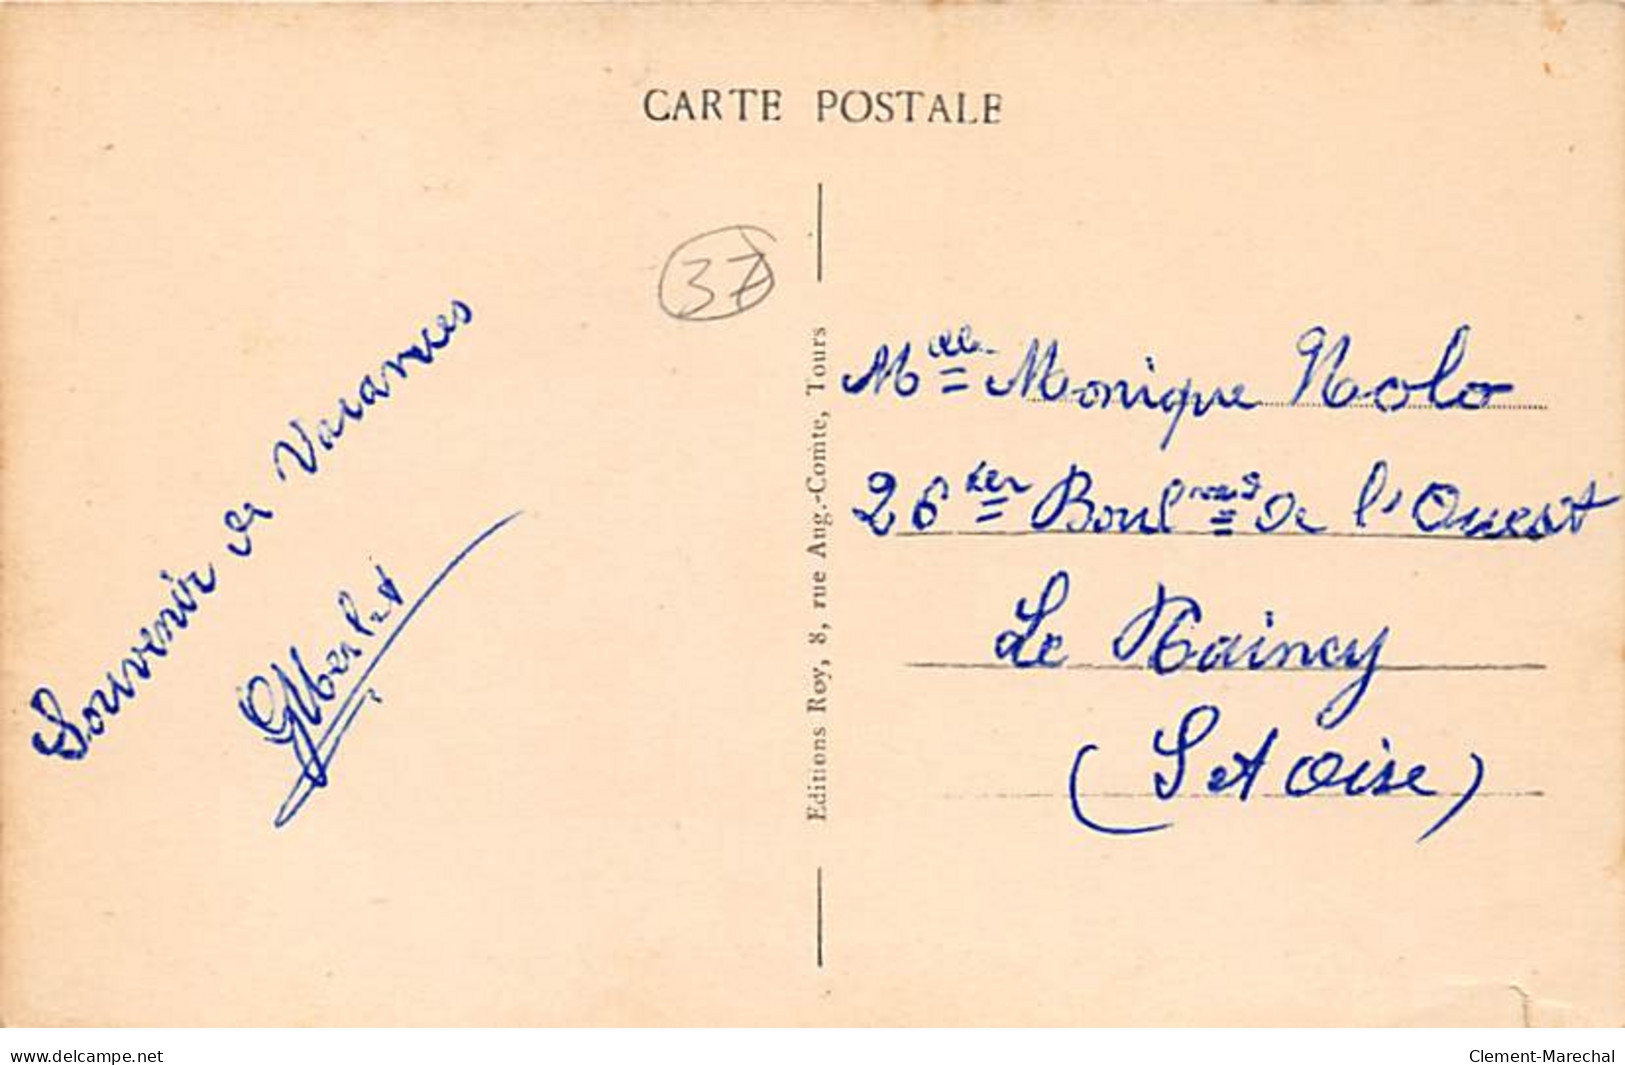 CARTE POSTALE
37
Souvenir de Vacances
Editions Roy, 8, rue Aug.-Comte, Tours
Mlle Monique Nolo
26 ter Boulvard de l'Ouest
Le Raincy
(S et Oise)
www.delcampe.net
Clement-Marechal